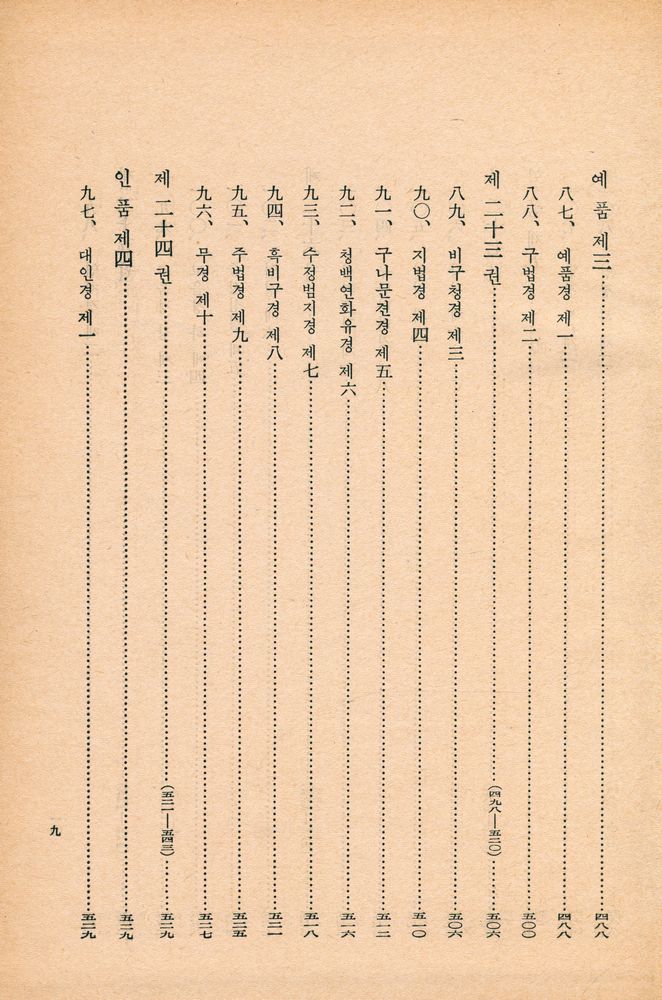 예품 제三……四八八
八七、예품경 제一……四八八
八八、구법경 제二……五〇〇
제 二十三 권……(四九八―五二〇)……五〇六
八九、비구청경 제三……五〇六
九〇、지법경 제四……五一〇
九一、구나문견경 제五……五一二
九二、청백연화유경 제六……五一六
九三、수정범지경 제七……五一八
九四、흑비구경 제八……五二一
九五、주법경 제九……五二五
九六、무경 제十……五二七
제 二十四 권……(五二一―五四三)……五二九
인품 제四……五二九
九七、대인경 제一……五二九
九